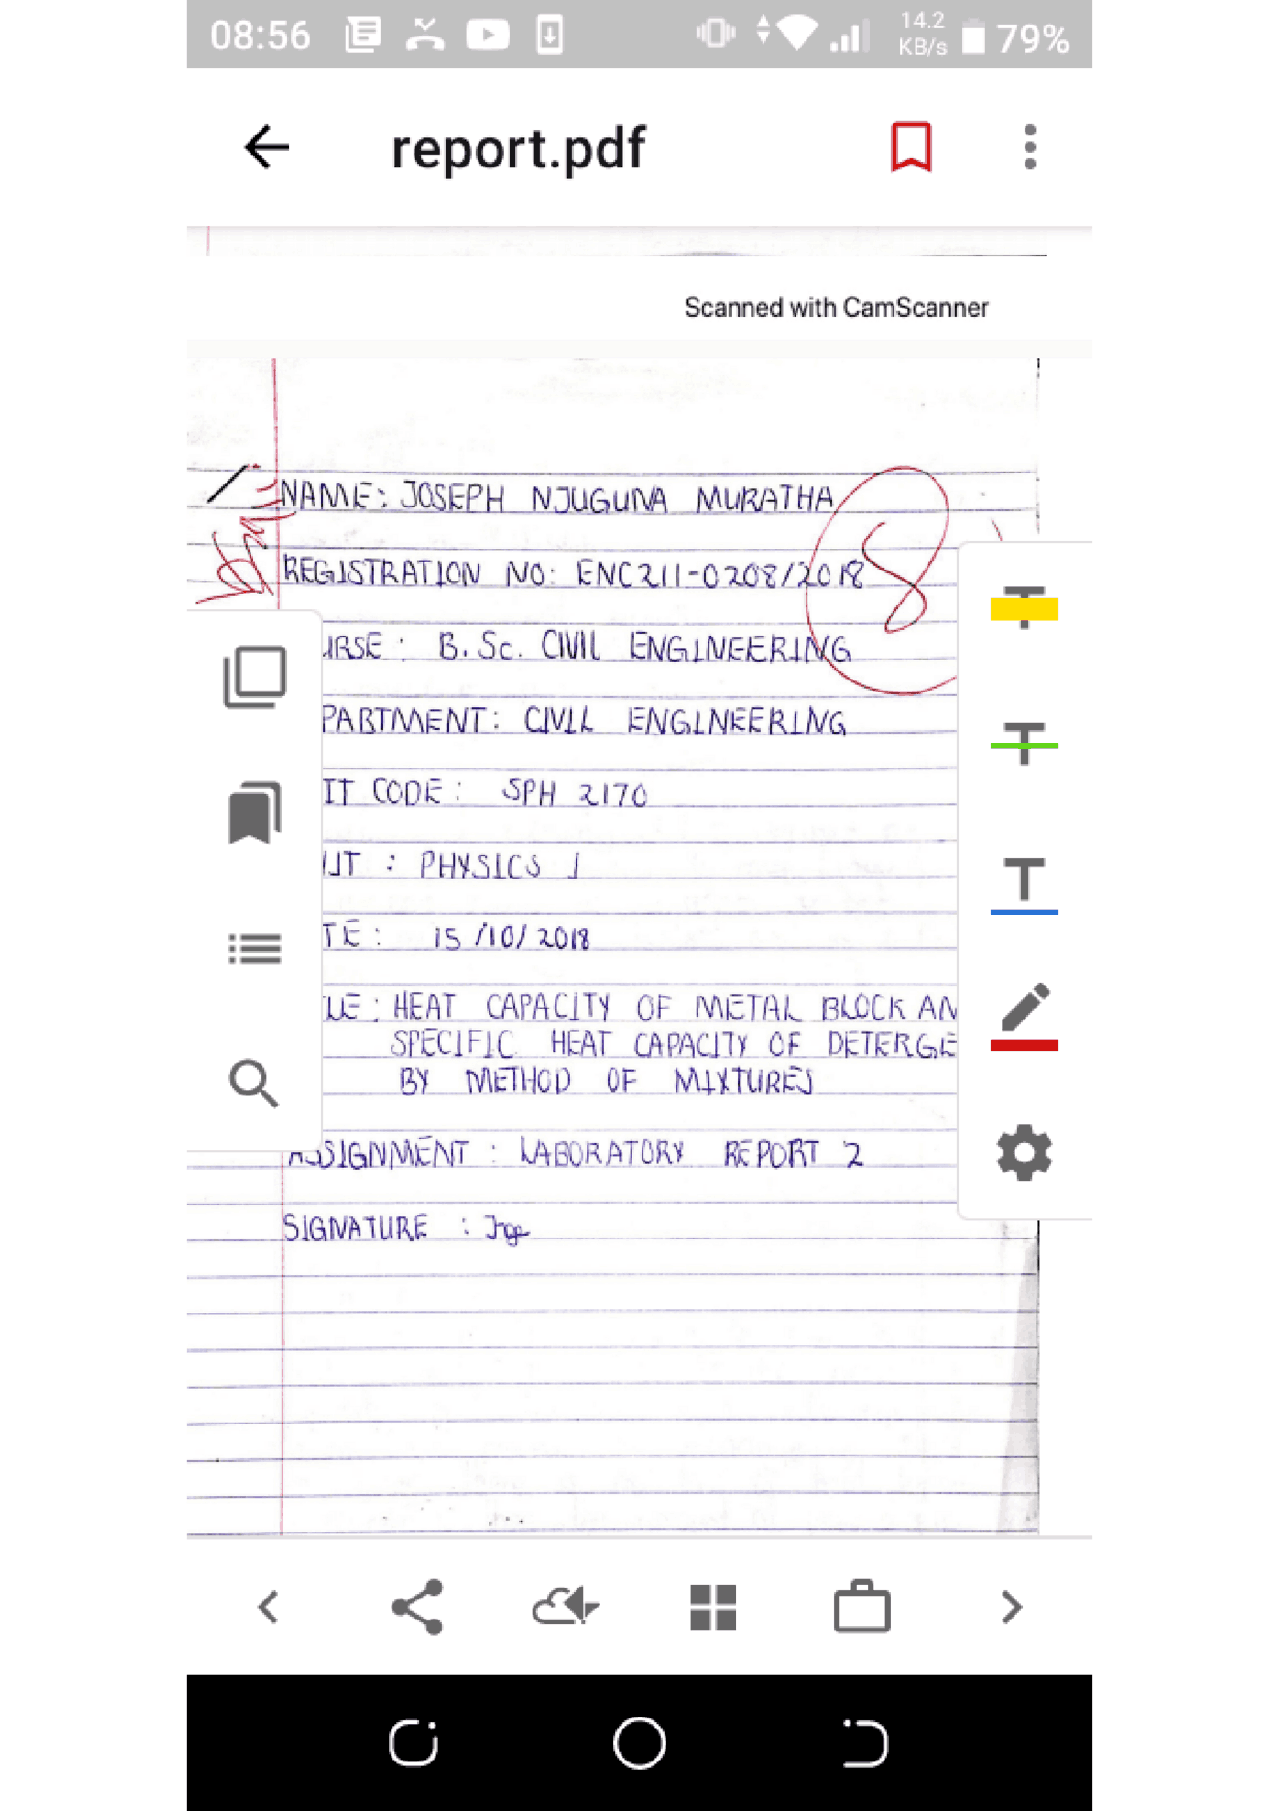 08:56
14.2
KB/s
79%
report.pdf
Scanned with CamScanner
NAME: JOSEPH NJUGUNA MURATHA
8
REGISTRATION NO: ENC211-0208/2018
URSE: B.Sc. CIVIL ENGINEERING
PARTMENT: CIVIL ENGINEERING
IT CODE: SPH 2170
IT: PHYSICS 1
TE: 15/10/2018
LE: HEAT CAPACITY OF METAL BLOCK AN
SPECIFIC HEAT CAPACITY OF DETERGE
BY METHOD OF MIXTURES
ASSIGNMENT: LABORATORY REPORT 2
SIGNATURE: